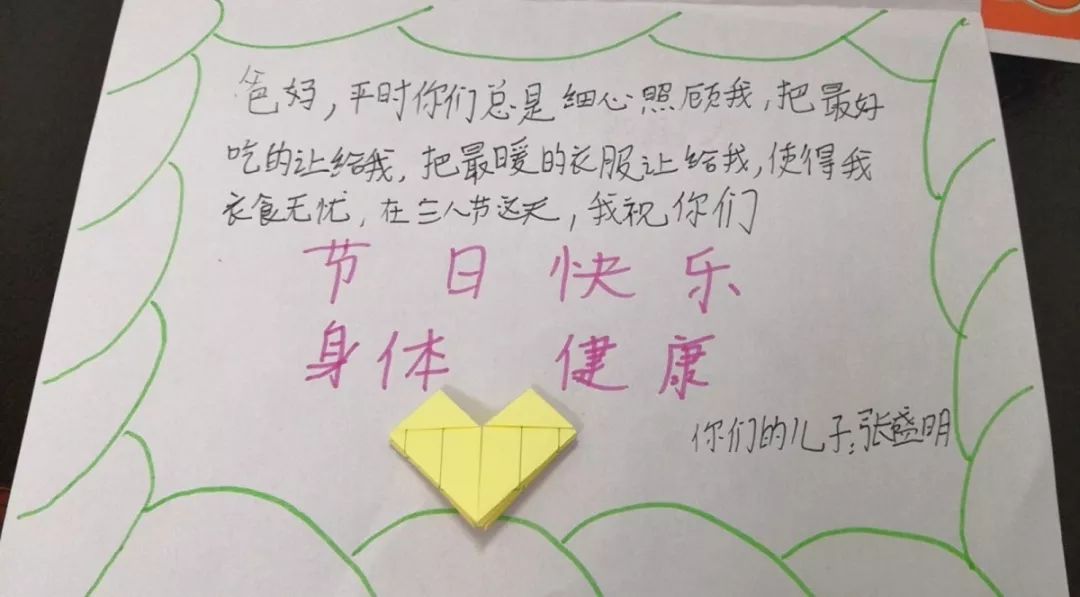 爸好，平时你们总是细心照顾我，把最好
吃的让给我，把最暖的衣服让给我，使得我
衣食无忧，在三八节这天，我祝你们
节日快乐
身体 健康
你们的儿子：张盛明